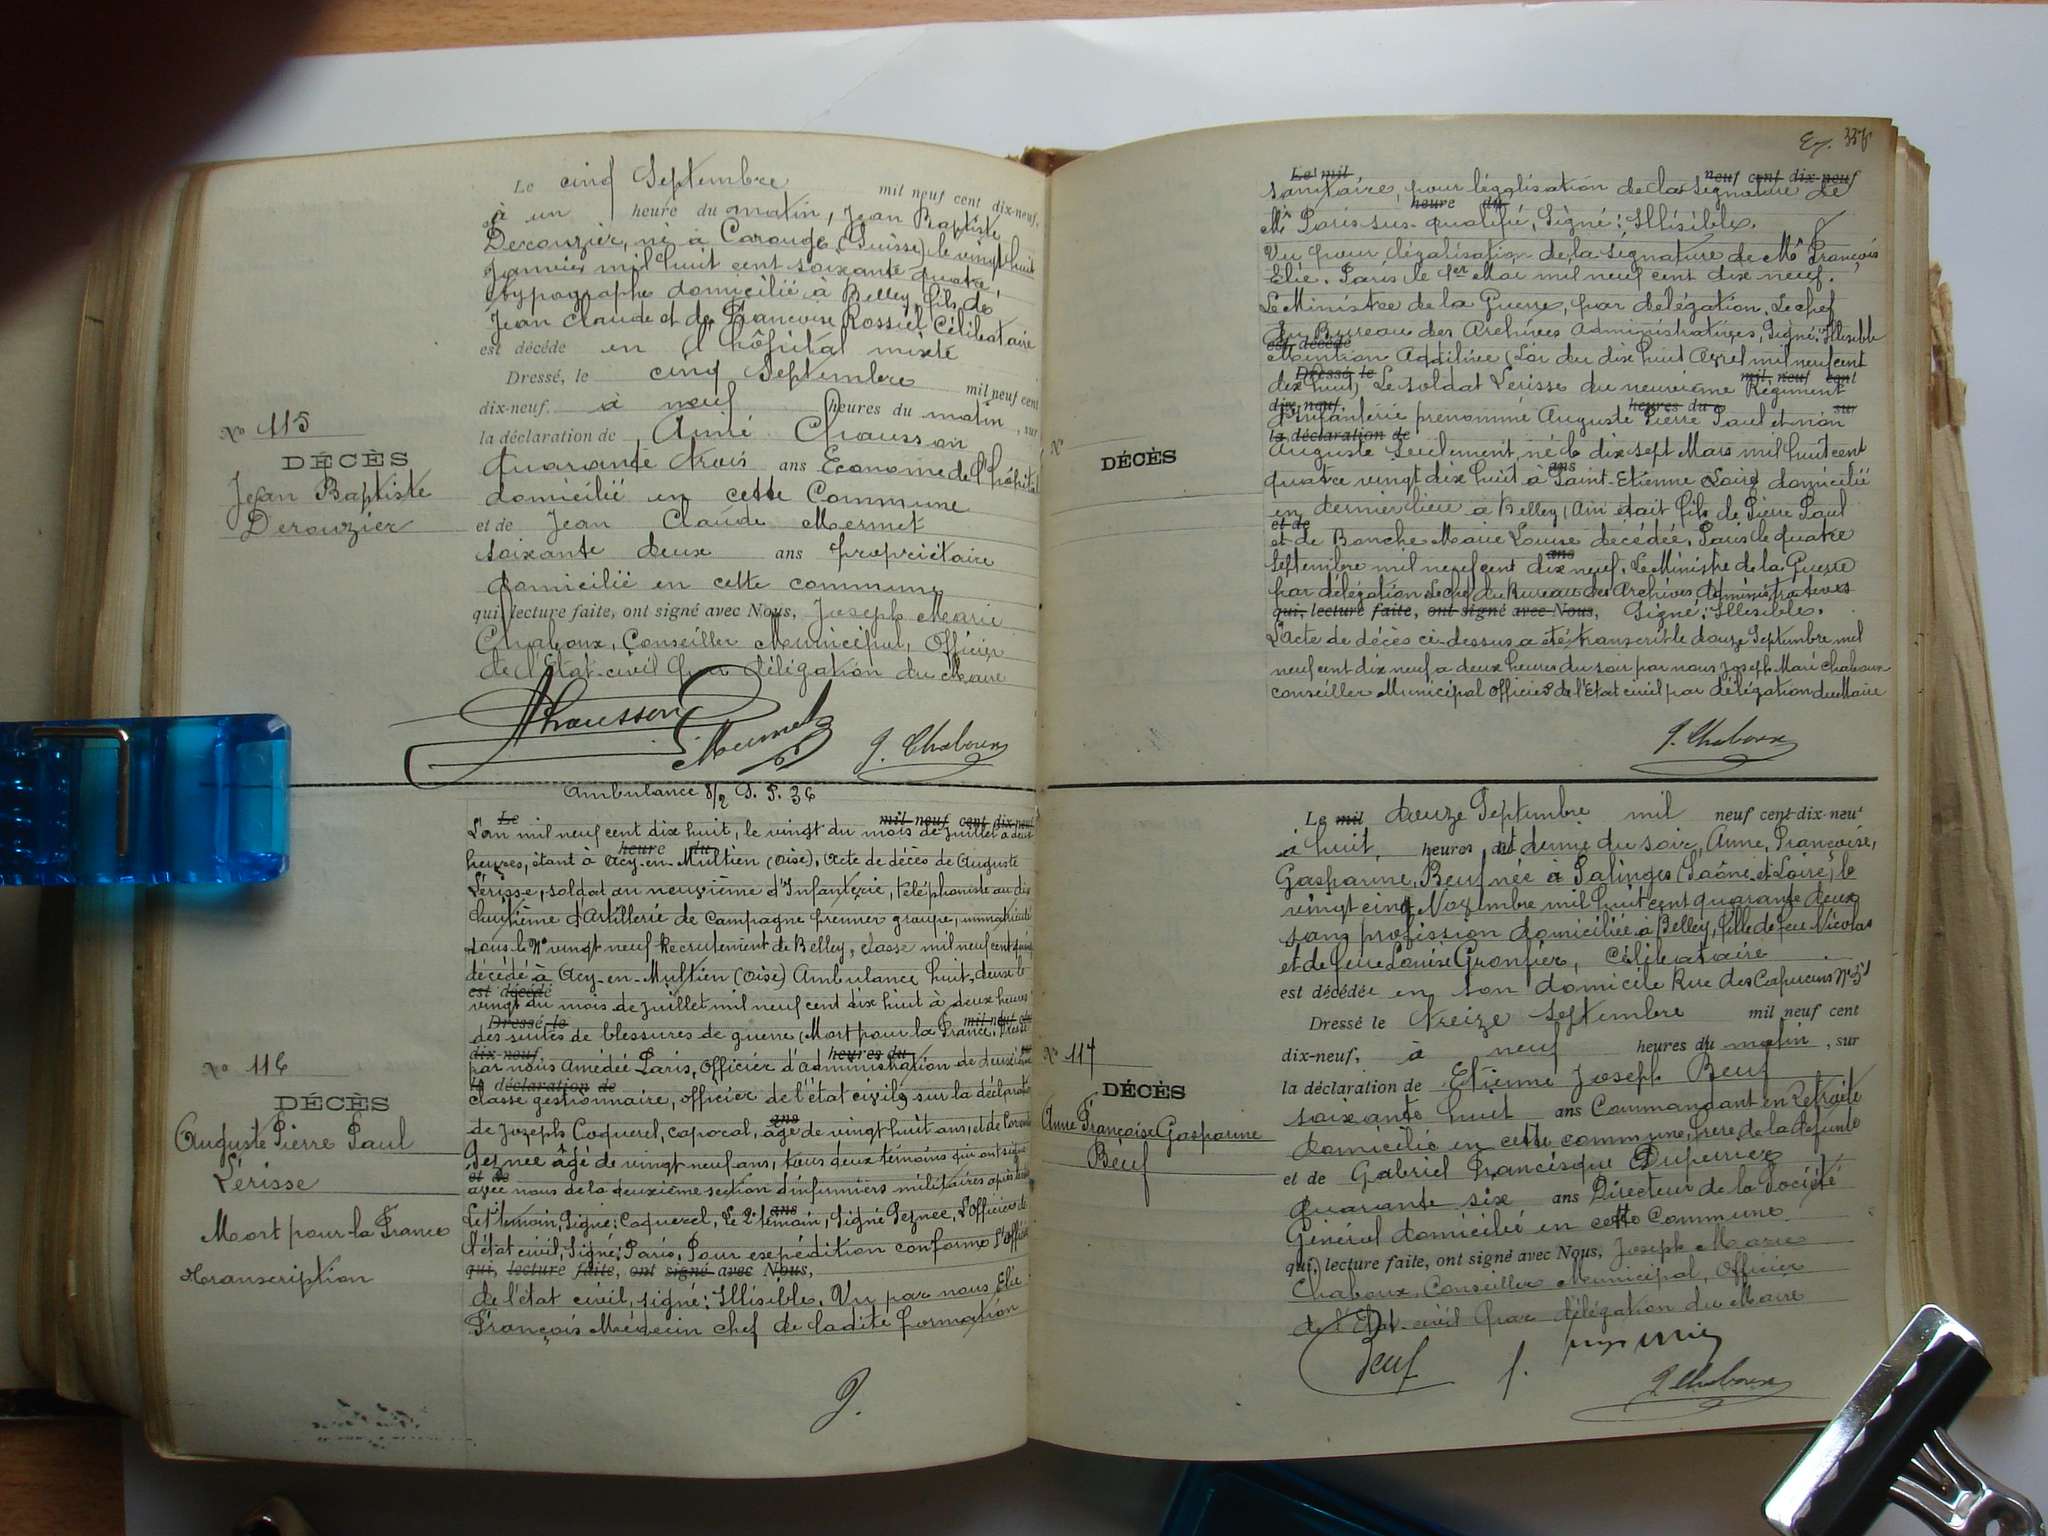 Le cinq Septembre mil neuf cent dix-neuf,
à un heure du matin, Jean Baptiste
Derouzier, né à Carouge (Suisse) le vingt huit
Janvier mil huit cent soixante quatre,
typographe domicilié à Belley, fils de
Jean Claude et de Françoise Rossiel Célibataire
est décédé en l'hôpital mixte
Dressé, le cinq Septembre mil neuf cent
dix-neuf à neuf heures du matin, sur
la déclaration de Aimé Chausson
quarante trois ans Econome de l'hôpital
domicilié en cette Commune
et de Jean Claude Mermet
soixante deux ans propriétaire
domicilié en cette commune
qui, lecture faite, ont signé avec Nous, Joseph Marie
Chaboux, Conseiller Municipal, Officier
de l'Etat-civil par délégation du Maire
No 115
DÉCÈS
Jean Baptiste
Derouzier
Chausson Mermet J. Chaboux
Ambulance 8/2 S. P. 36
Le mil neuf cent dix-neuf
L'an mil neuf cent dix huit, le vingt du mois de Juillet à deux
heure du
heures, étant à Acy-en-Multien (Oise), Acte de décès de Auguste
Lérisse, soldat au neuvième d'Infanterie, téléphoniste au dix
huitième d'Artillerie de Campagne premier groupe, immatriculé
sous le No vingt neuf Recrutement de Belley, classe mil neuf cent
décédé à Acy-en-Multien (Oise) Ambulance huit-deux le
est décédé
vingt du mois de juillet mil neuf cent dix huit à deux heures
Dressé, le mil neuf cent
des suites de blessures de guerre (Mort pour la France. Dressé
dix-neuf, heures du
par nous Amédée Paris, Officier d'administration de deuxième
la déclaration de
classe gestionnaire, officier de l'état civil, sur la déclaration
ans
de Joseph Coquerel, caporal, âgé de vingt huit ans, et de
Geznec âgé de vingt neuf ans, tous deux témoins qui ont signé
et de
avec nous de la deuxième section d'infirmiers militaires après
ans
Le 1er témoin, Signé: Coquerel, Le 2e témoin, Signé Geznec, L'Officier de
l'état civil, Signé: Paris. Pour expédition conforme l'officier
qui, lecture faite, ont signé avec Nous,
de l'état civil, signé: Illisible. Vu par nous Elie
François Médecin chef de ladite formation
J.
No 116
DÉCÈS
Auguste Pierre Paul
Lérisse
Mort pour la France
transcription
Le mil neuf cent dix-neuf
sanitaire, pour légalisation de la signature de
heure du
Mr Paris sus-qualifié, Signé: Illisible.
Vu pour légalisation de la signature de Mr François
Elie. Paris le 1er Mai mil neuf cent dix neuf.
Le Ministre de la Guerre, par délégation. Le chef
du Bureau des Archives Administratives, Signé: Illisible
est décédé
Mention Additive (Loi du dix huit Avril mil neuf cent
Dressé le mil neuf cent
dix huit) Le soldat Lérisse du neuvième Régiment
dix-neuf. heures du sur
d'Infanterie prénommé Auguste Pierre Paul et non
la déclaration de
Auguste seulement, né le dix sept Mars mil huit cent
ans
quatre vingt dix huit à Saint-Etienne (Loire) domicilié
en dernier lieu à Belley (Ain) était fils de Pierre Paul
et de
et de Banche Marie Louise décédée. Paris le quatre
ans
Septembre mil neuf cent dix neuf. Le Ministre de la Guerre
par délégation Le chef du Bureau des Archives Administratives
qui, lecture faite, ont signé avec Nous, Signé: Illisible.
L'acte de décès ci-dessus a été transcrit le douze Septembre mil
neuf cent dix neuf à deux heures du soir par nous Joseph Marie Chaboux
conseiller Municipal Officier de l'Etat civil par délégation du Maire
J. Chaboux
No
DÉCÈS
Le mil douze Septembre mil neuf cent-dix-neuf
à huit, heures et demie du soir, Anne, Françoise,
Gasparine, Beuf née à Palinges (Saône et Loire), le
vingt cinq Novembre mil huit cent quarante deux
sans profession domiciliée à Belley, fille de feu Nicolas
et de feue Louise Gronfier, Célibataire
est décédée en son domicile Rue des Capucins No
Dressé le treize Septembre mil neuf cent
dix-neuf, à neuf heures du matin, sur
la déclaration de Etienne Joseph Beuf
soixante huit ans Commandant en Retraite
domicilié en cette commune, frère de la défunte
et de Gabriel Francisque Duperrier
quarante six ans Directeur de la Société
Général domicilié en cette Commune
qui, lecture faite, ont signé avec Nous, Joseph Marie
Chaboux, Conseiller Municipal, Officier
de l'Etat-civil par délégation du Maire
No 117
DÉCÈS
Anne Françoise Gasparine
Beuf
Beuf J. Chaboux